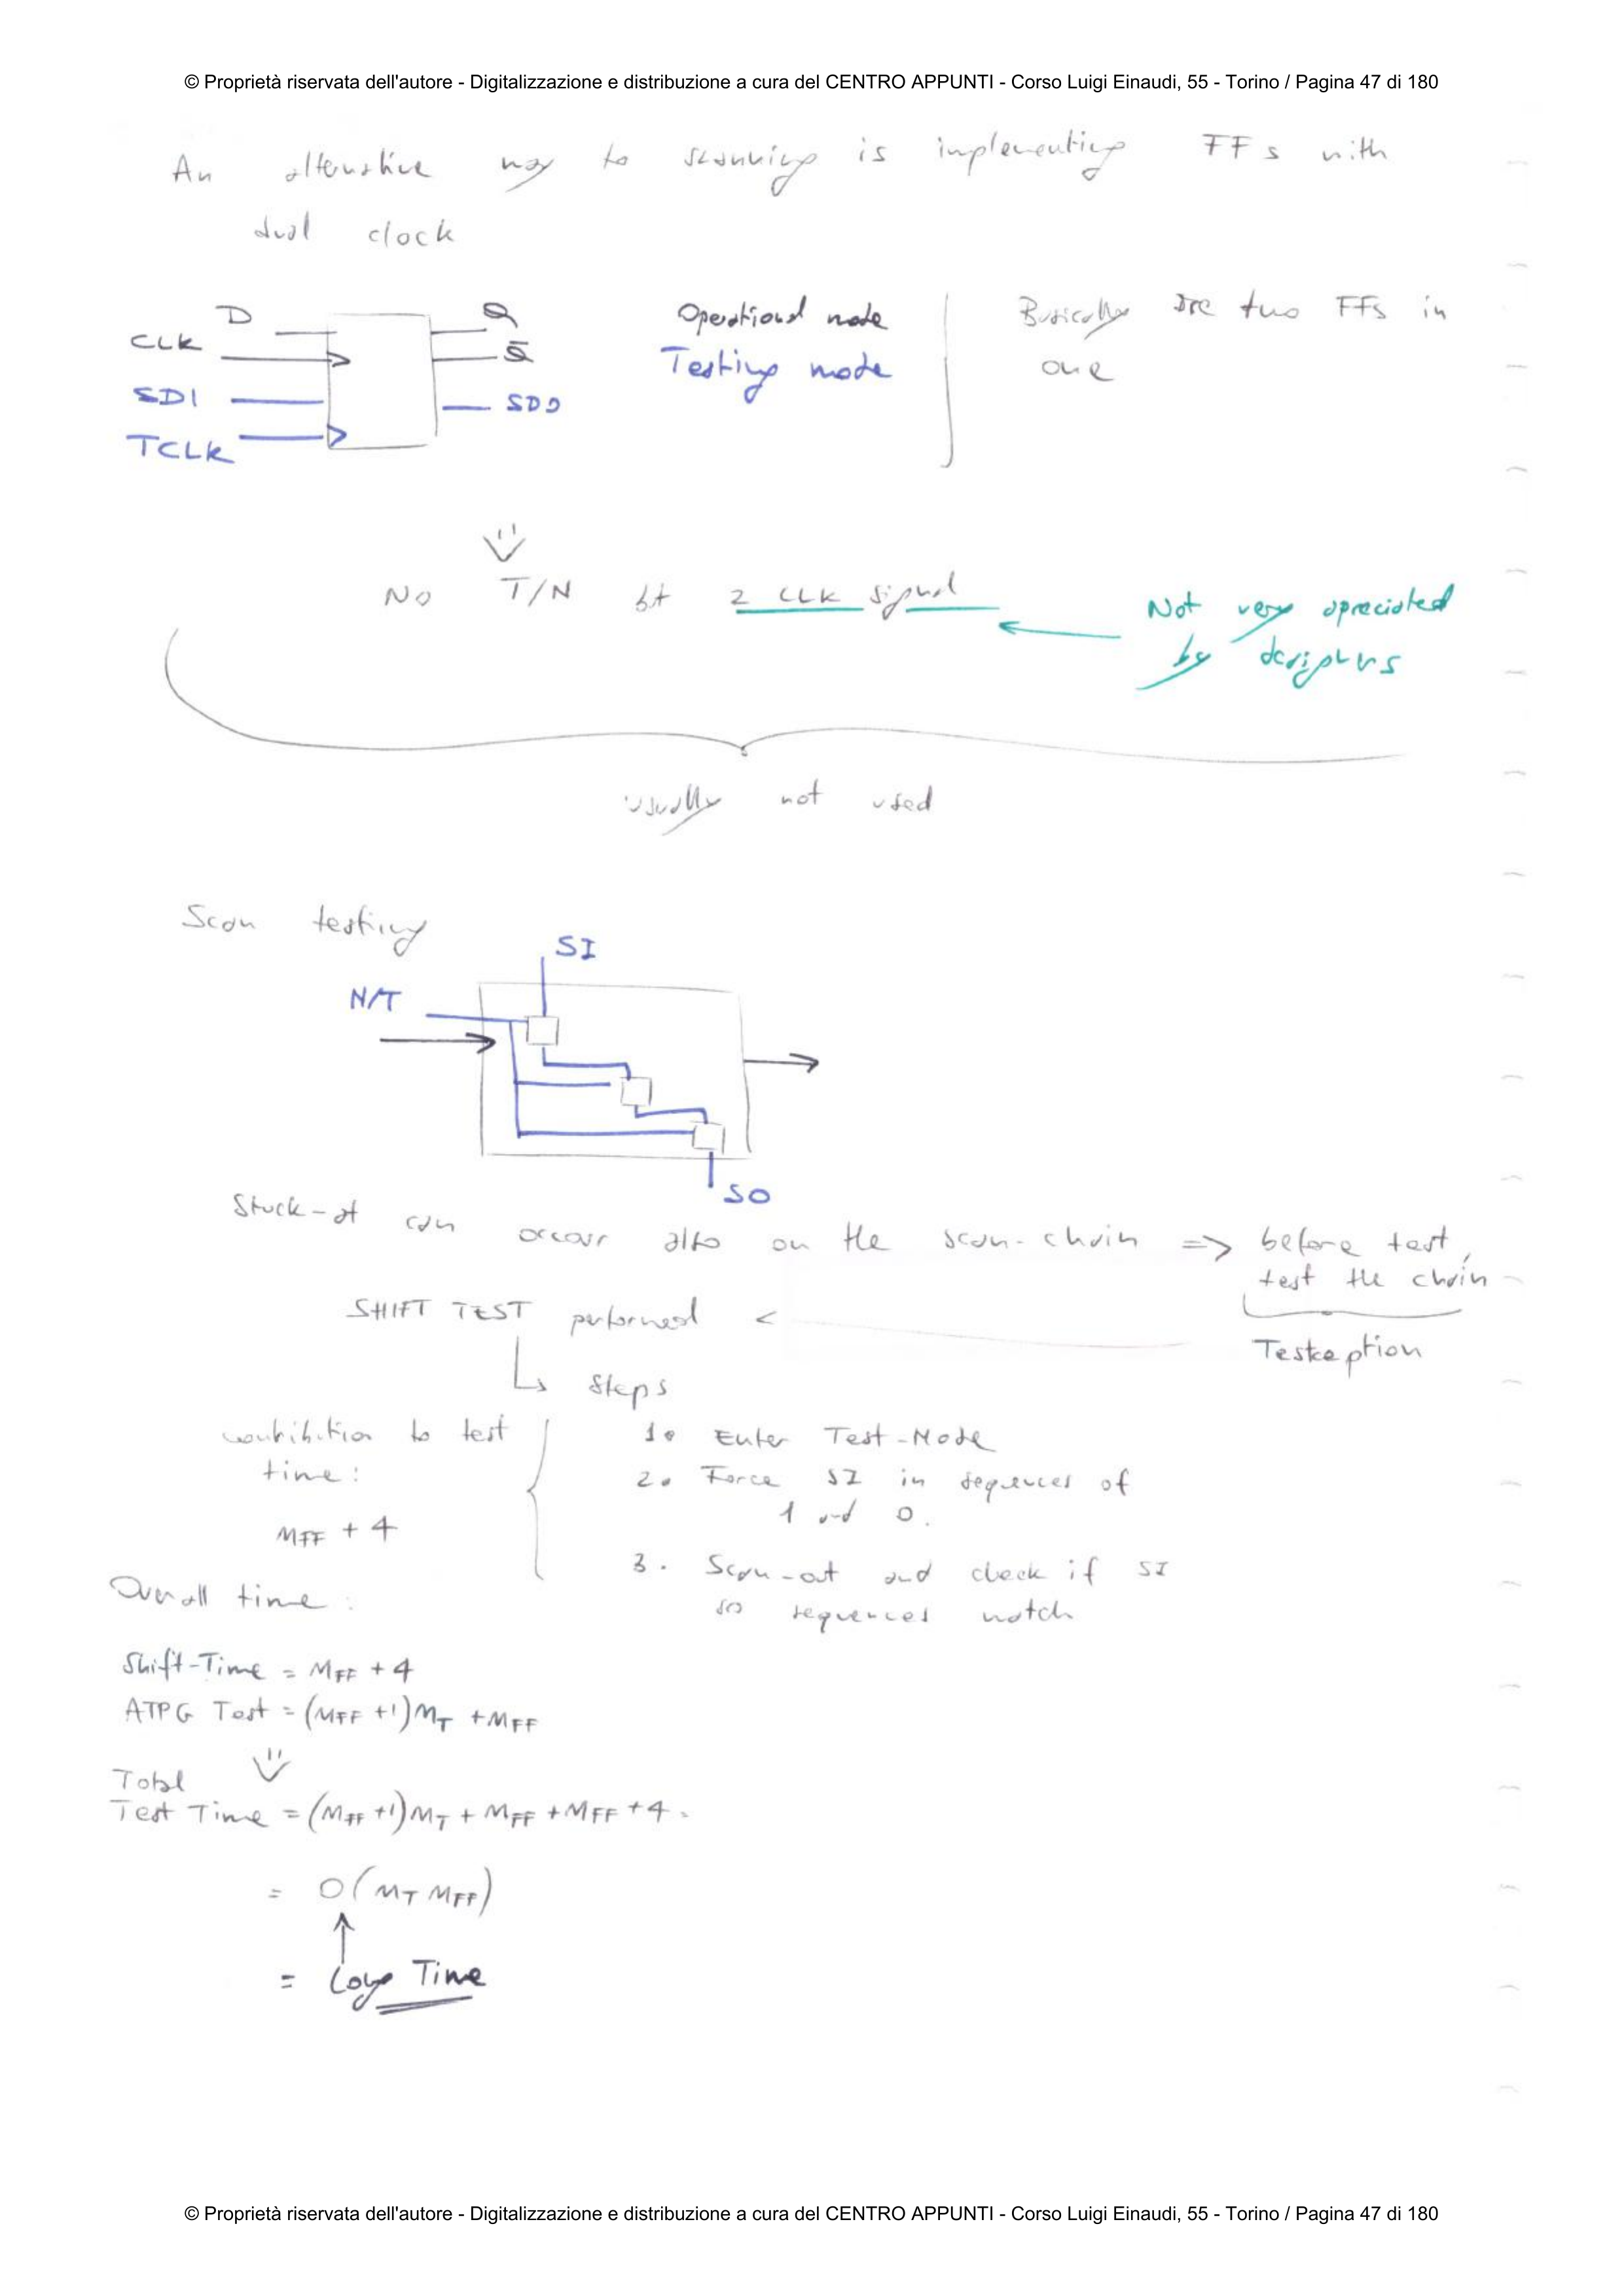 © Proprietà riservata dell'autore - Digitalizzazione e distribuzione a cura del CENTRO APPUNTI - Corso Luigi Einaudi, 55 - Torino / Pagina 47 di 180
An alternative way to scanning is implementing FFs with
dual clock
D Q
CLK Q̅
SDI SDO
TCLK
Operational mode
Testing mode
Basically are two FFs in
one
No T/N bt 2 CLK signal
Not very apreciated
by designers
usually not used
Scan testing
SI
N/T
SO
Stuck-at can occour also on the scan-chain => before test,
test the chain
SHIFT TEST performed <
Testception
↳ steps
contribition to test
time:
MFF + 4
1. Enter Test-Mode
2. Force SI in sequences of
1 and 0.
3. Scan-out and check if SI
so sequences match
Overall time:
Shift-Time = MFF + 4
ATPG Test = (MFF +1)MT + MFF
Total
Test Time = (MFF +1)MT + MFF + MFF + 4 =
= O(MT MFF)
= Long Time
© Proprietà riservata dell'autore - Digitalizzazione e distribuzione a cura del CENTRO APPUNTI - Corso Luigi Einaudi, 55 - Torino / Pagina 47 di 180